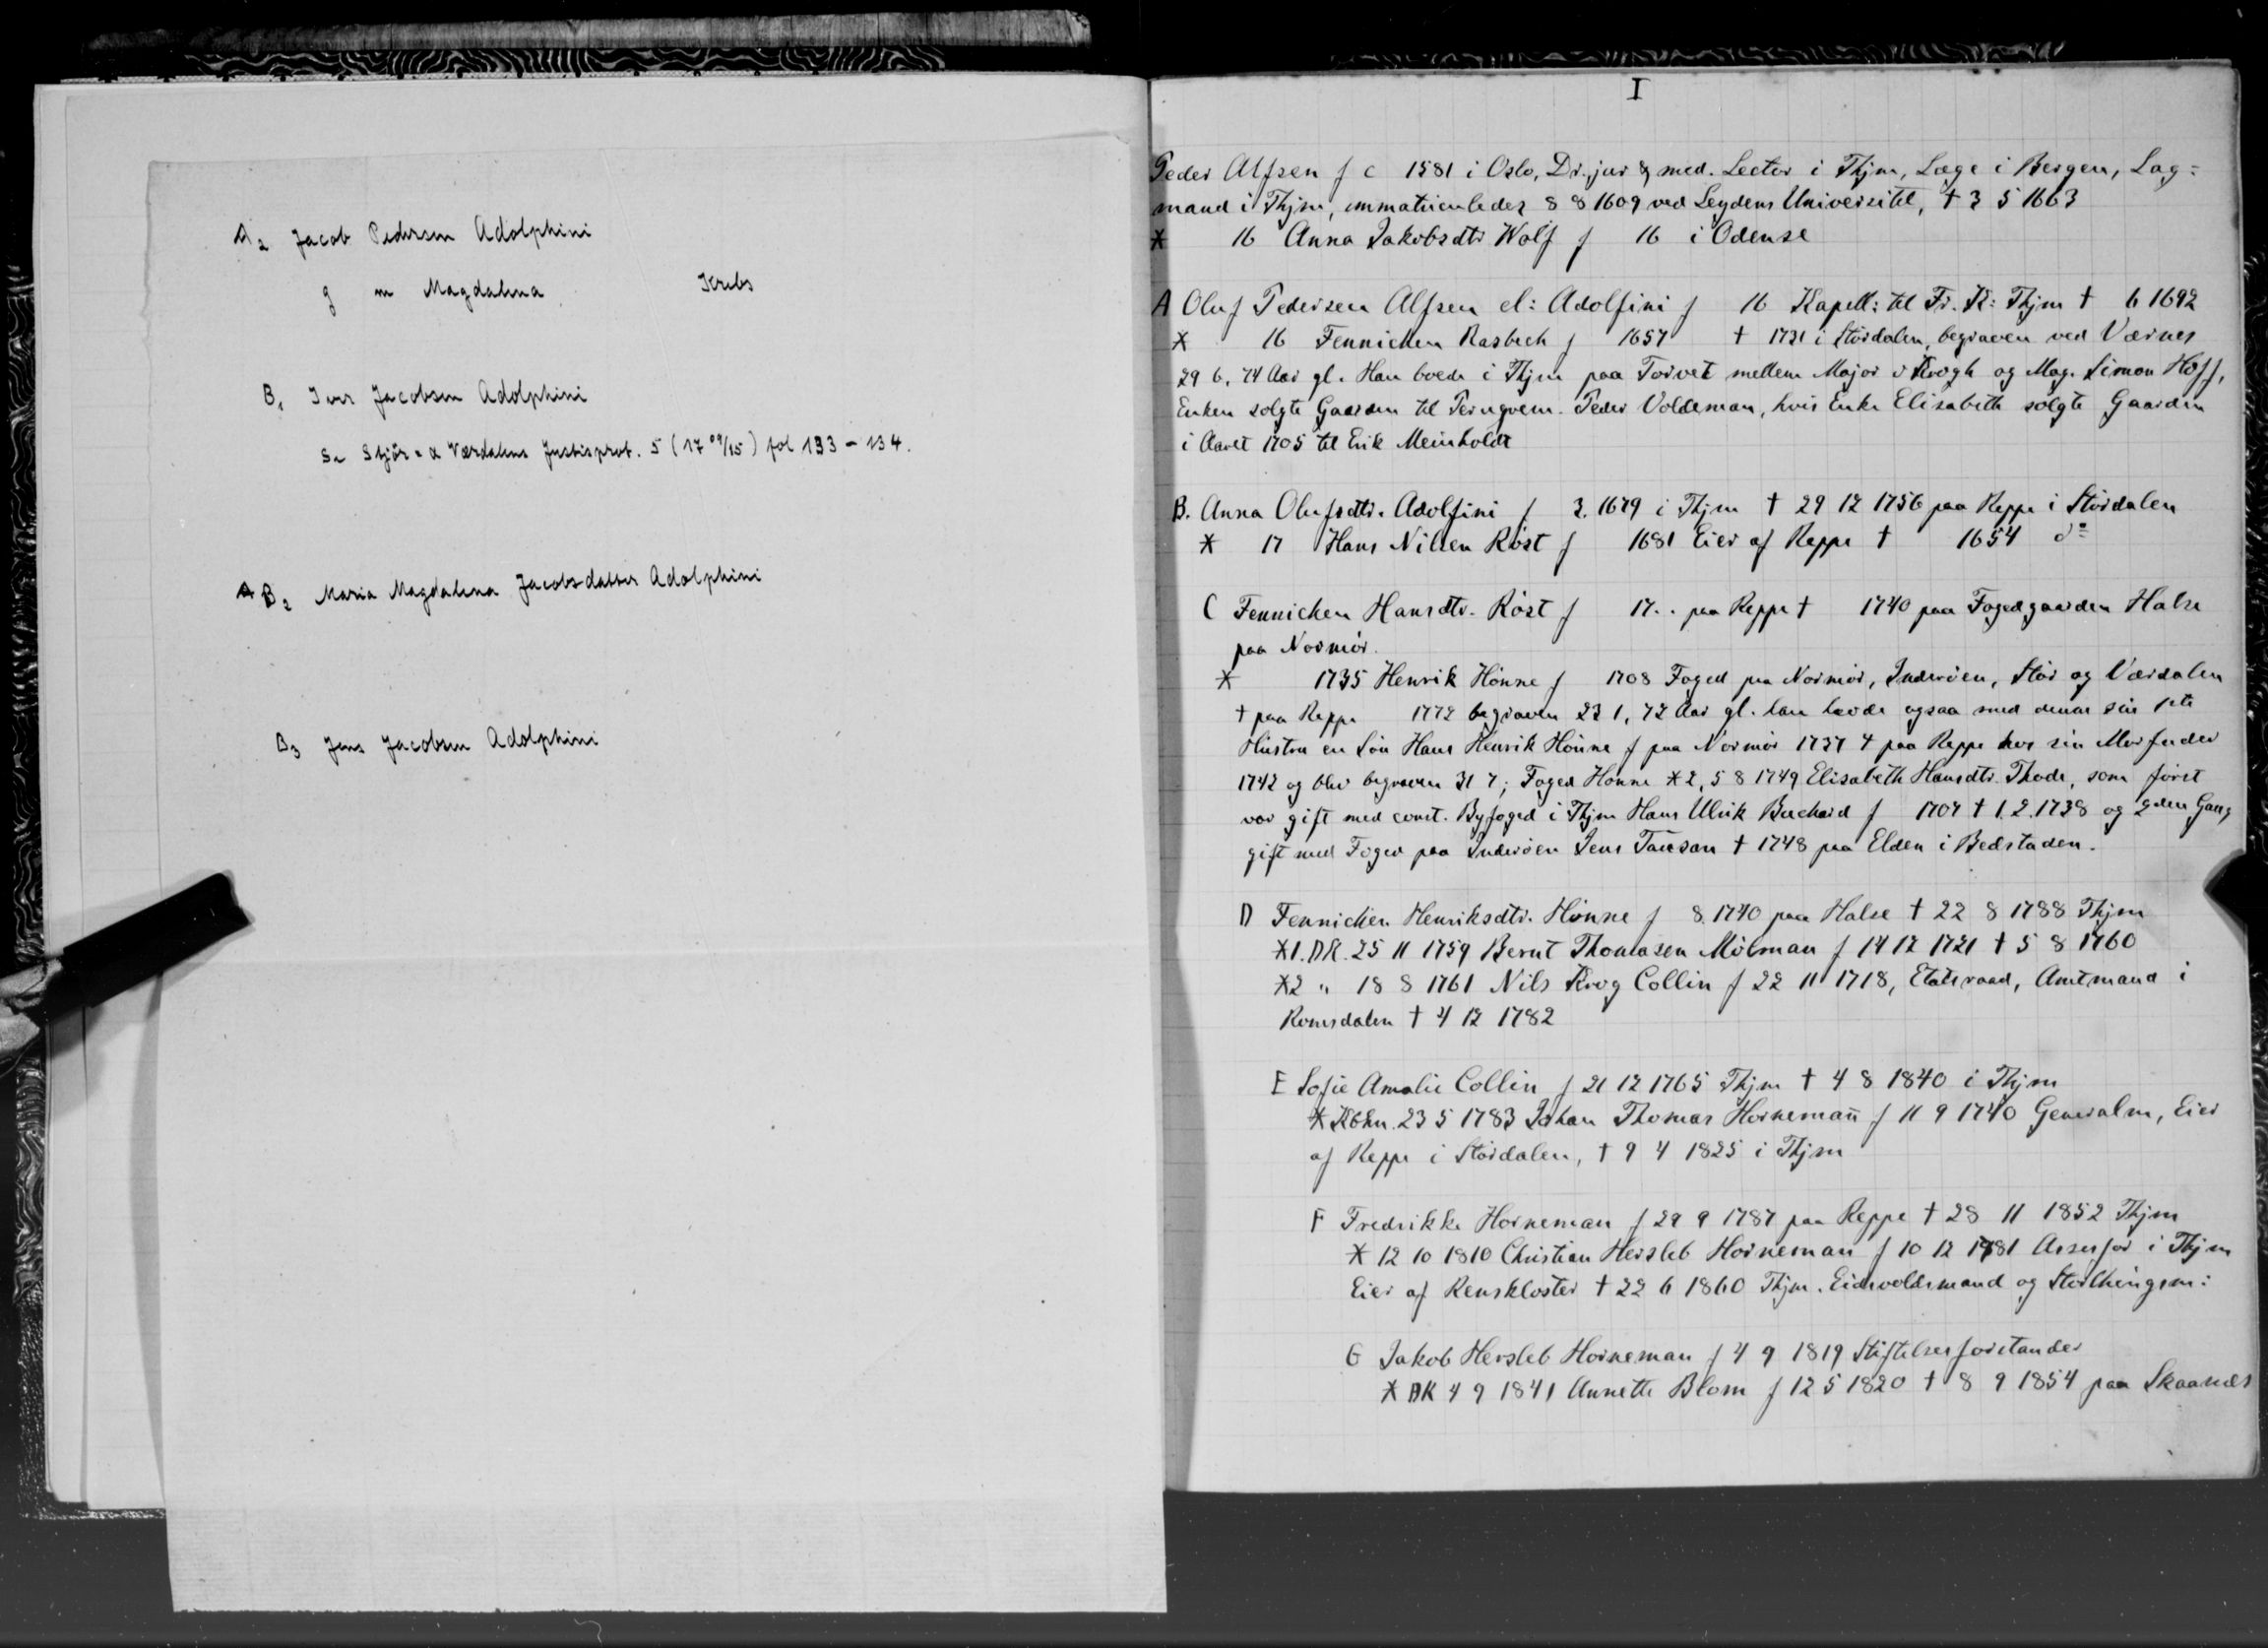 A2 Jacob Pedersen Adolphini
g m Magdalena Krebs
B1 Iver Jacobsen Adolphini
Se Stjör- & Værdalens Justisprot. 5 (17 09/15) fol 133 - 134.
A B2 Maria Magdalena Jacobsdatter Adolphini
B3 Jens Jacobsen Adolphini
I
Peder Alfsen f c 1581 i Oslo, Dr. jur & med. Lector i Thjm, Læge i Bergen, Lag=
mand i Thjm, immatriculeder 8 8 1609 ved Leydens Universitet, † 3 5 1663
* 16 Anna Jakobsdtr Wolf f 16 i Odense
A Oluf Pedersen Alfsen el: Adolfini f 16 Kapell: til Fr. K: Thjm † 6 1692
* 16 Fennichen Rasbech f 1657 † 1731 i Stördalen, begraven ved Værnes
29 6, 74 Aar gl. Han boede i Thjm paa Torvet mellem Major v Krogh og Mag. Simon Hoff,
Enken solgte Gaarden til Peder Voldeman, hvis Enke Elisabeth solgte Gaarden
i Aaret 1705 til Erik Meinholdt
B. Anna Olufsdtr. Adolfini f 3. 1679 i Thjm † 29 12 1756 paa Reppe i Stördalen
* 17 Hans Nilsen Röst f 1681 Eier af Reppe † 1654 do
C Fennichen Hansdtr. Röst f 17.. paa Reppe † 1740 paa Fogedgaarden Halse
paa Normör.
* 1735 Henrik Hönne f 1708 Foged paa Normör, Inderöen, Stör og Værdalen
† paa Reppe 1772 begraven 23 1, 72 Aar gl. han havde ogsaa med denne sin 1ste
Hustru en Sön Hans Henrik Hönne f paa Normör 1737 † paa Reppe hos sin Morfader
1742 og blev begraven 31 7; Foged Hönne *2, 5 8 1749 Elisabeth Hansdtr. Thode, som först
var gift med const. Byfoged i Thjm Hans Ulrik Buchard f 1707 † 1. 2. 1738 og 2den Gang
gift med Foged paa Inderöen Jens Tausan † 1748 paa Elden i Bedstaden.
D Fennichen Henriksdtr. Hönne f 8. 1740 paa Halse † 22 8 1788 Thjm
*1. DK. 25 11 1759 Bernt Thomasen Mölman f 14 12 1721 † 5 8 1760
*2 " 18 8 1761 Nils Krog Collin f 22 11 1718, Etatsraad, Amtmand i
Romsdalen † 4 12 1782
E Sofie Amalie Collin f 21 12 1765 Thjm † 4 8 1840 i Thjm
* Kbhn. 23 5 1783 Johan Thomas Horneman̄ f 11 9 1740 Generalm, Eier
af Reppe i Stördalen, † 9 4 1825 i Thjm
F Fredrikke Horneman f 29 9 1787 paa Reppe † 28 11 1852 Thjm
* 12 10 1810 Christian Hersleb Horneman̄ f 10 12 1781 Assesfor i Thjm
Eier af Reinskloster † 22 6 1860 Thjm. Eidsvoldsmand og Storthingsm:
G Jakob Hersleb Horneman f 4 9 1819 Stiftelsesforstander
* DK 4 9 1841 Annette Blom f 12 5 1820 † 8 9 1854 paa Skaanes